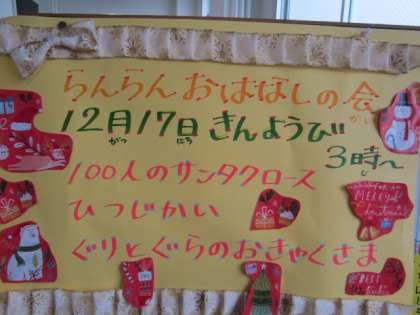 らんらんおはなしの会
かい
12月17日きんようび
がつ にち
3時～
じ
100人のサンタクロース
ひつじかい
ぐりとぐらのおきゃくさま
MERRY
Christmas